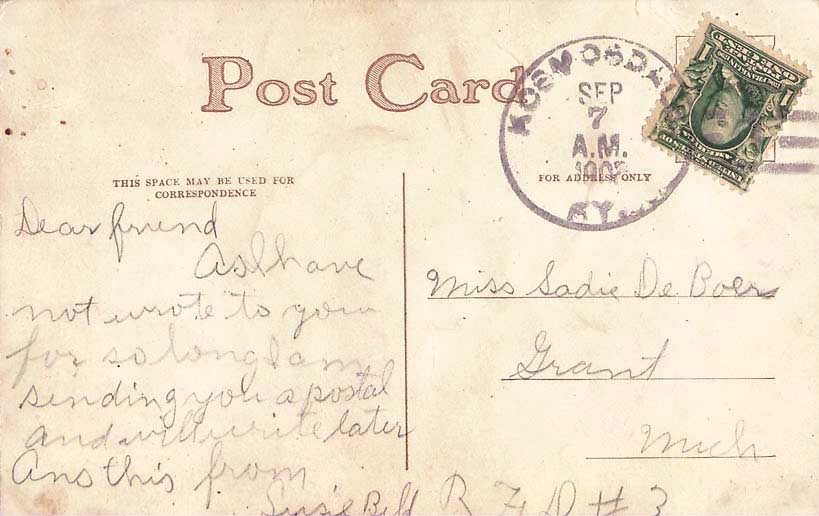 Post Card
KOSMOSDALE
SEP
7
A.M.
KY.
THIS SPACE MAY BE USED FOR
CORRESPONDENCE
FOR ADDRESS ONLY
Dear friend
As I have
not wrote to you
for so long I am
sending you a postal
and will write later
Ans this from
Susie Bell R F D # 3
Miss Sadie De Boer
Grant
Mich
1
1